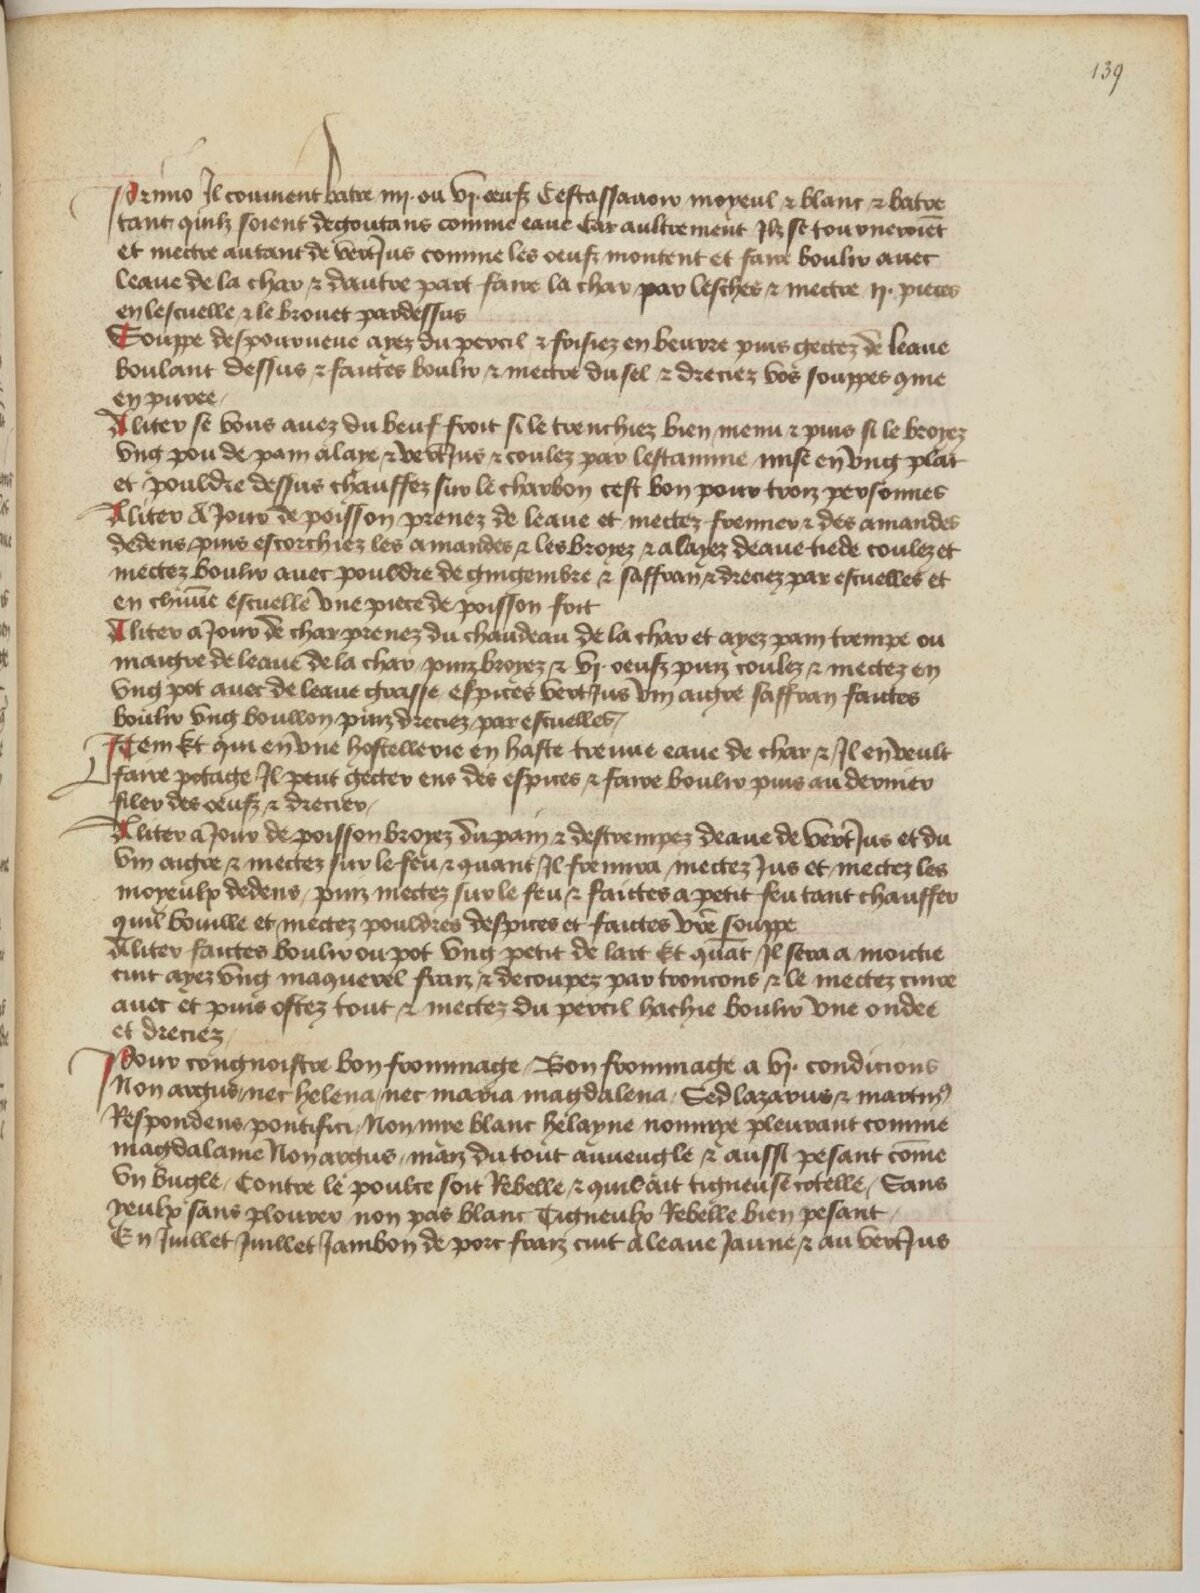 139
Primo Il convient batre iiij. ou vj. oeufz Cestassavoir moyeul & blanc & batre
tant quilz soient degoutans comme eaue Car aultrement Ilz se tourneroiẽt
et mectre autant de vertjus comme les oeufz montent et faire boulir avec
leaue de la char & dautre part faire la char par lesches & mectre ij. pieces
en lescuelle & le brouet pardessus
Souppe despourveue ayez du percil & frisiez en beurre puis gectez de leaue
boulant dessus & faictes boulir & mectre du sel & dreciez vos souppes 9me
en puree /
Aliter se vous avez du beuf froit si le trenchiez bien menu & puis si le broyez
ung pou de pain alaye & vertjus & coulez par lestamine mise en ung plat
et pouldre dessus chauffez sur le charbon cest bon pour troiz personnes
Aliter A Jour de poisson prenez de leaue et mectez fremier & des amandes
dedens puis escorchiez les amandes & les broyez & alayez deaue tiede coulez et
mectez boulir avec pouldre de gingembre & saffran & dreciez par escuelles et
en chũne escuelle une piece de poisson frit
Aliter a Jour de char prenez du chaudeau de la char et ayez pain trempe ou
maigre de leaue de la char / puiz broyez & vj. oeufz puiz coulez & mectez en
ung pot avec de leaue grasse espices vertjus vin aigre saffran faictes
boulir ung boullon puiz dreciez par escuelles /
Item Et qui en une hostellerie en haste treuve eaue de char & Il en veult
faire potage Il peut gecter ens des espices & faire boulir puis au derrenier
filer des oeufz & drecier /
Aliter a Jour de poisson broyez du pain & destrempez deaue de vertjus et du
vin aigre & mectez sur le feu & quant Il fremira / mectez Jus et mectez les
moyeulx dedens / puiz mectez sur le feu & faictes a petit feu tant chauffer
quil bouille et mectez pouldres despices et faictes vr̃e souppe
Aliter faictes boulir ou pot ung petit de lart Et quãt Il sera a moictie
cuit ayez ung maquerel fraiz & decoupez par troncons & le mectez cuire
avec et puis ostez tout & mectez du percil hachie boulir une ondee
et dreciez /
Pour congnoistre bon frommage / Bon frommage a vj. condicions
Non argus / nec helena / nec maria magdalena / Sed lazarus & martin9
Respondens pontifici / Non mye blanc helayne non mye pleurant comme
magdalaine Non argus / maiz du tout avveugle & aussi pesant com̃e
un bugle / Contre le poulce soit Rebelle & quil ait tigneuse cotelle / Sans
yeulx sans plourer non pas blanc Tigneulx Rebelle bien pesant /
En Juillet Juillet Jambon de porc fraiz cuit a leaue Jaune & au vertjus